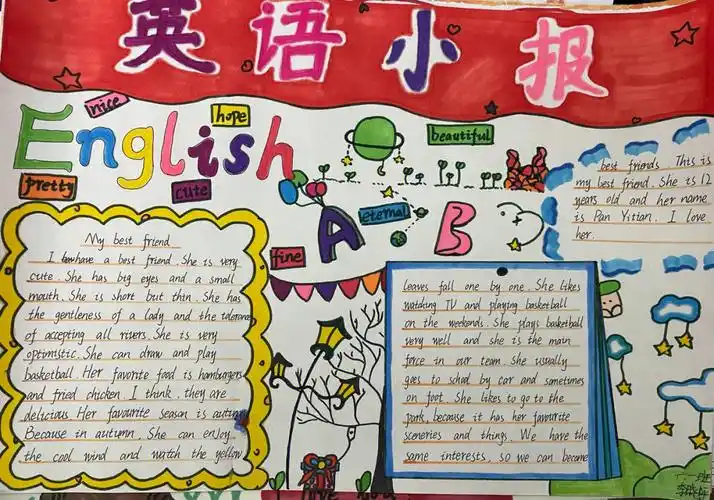 英语小报
English
nice
hope
beautiful
pretty
cute
eternal
fine
A B
My best friend
I have a best friend. She is very
cute. She has big eyes and a small
mouth. She is short but thin. She has
the gentleness of a lady and the tolerance
of accepting all rivers. She is very
optimistic. She can draw and play
basketball. Her favorite food is hamburgers
and fried chicken. I think. they are
delicious. Her favourite season is autumn
Because in autumn. She can enjoy
the cool wind and watch the yellow
leaves fall one by one. She likes
watching TV and playing basketball
on the weekends. She plays basketball
very well and she is the main
force in our team. She usually
goes to school by car and sometimes
on foot. She likes to go to the
park, because it has her favourite
sceneries and things. We have the
same interests, so we can become
best friends. This is
my best friend. She is 12
years old and her name
is Pan Yitian. I love
her.